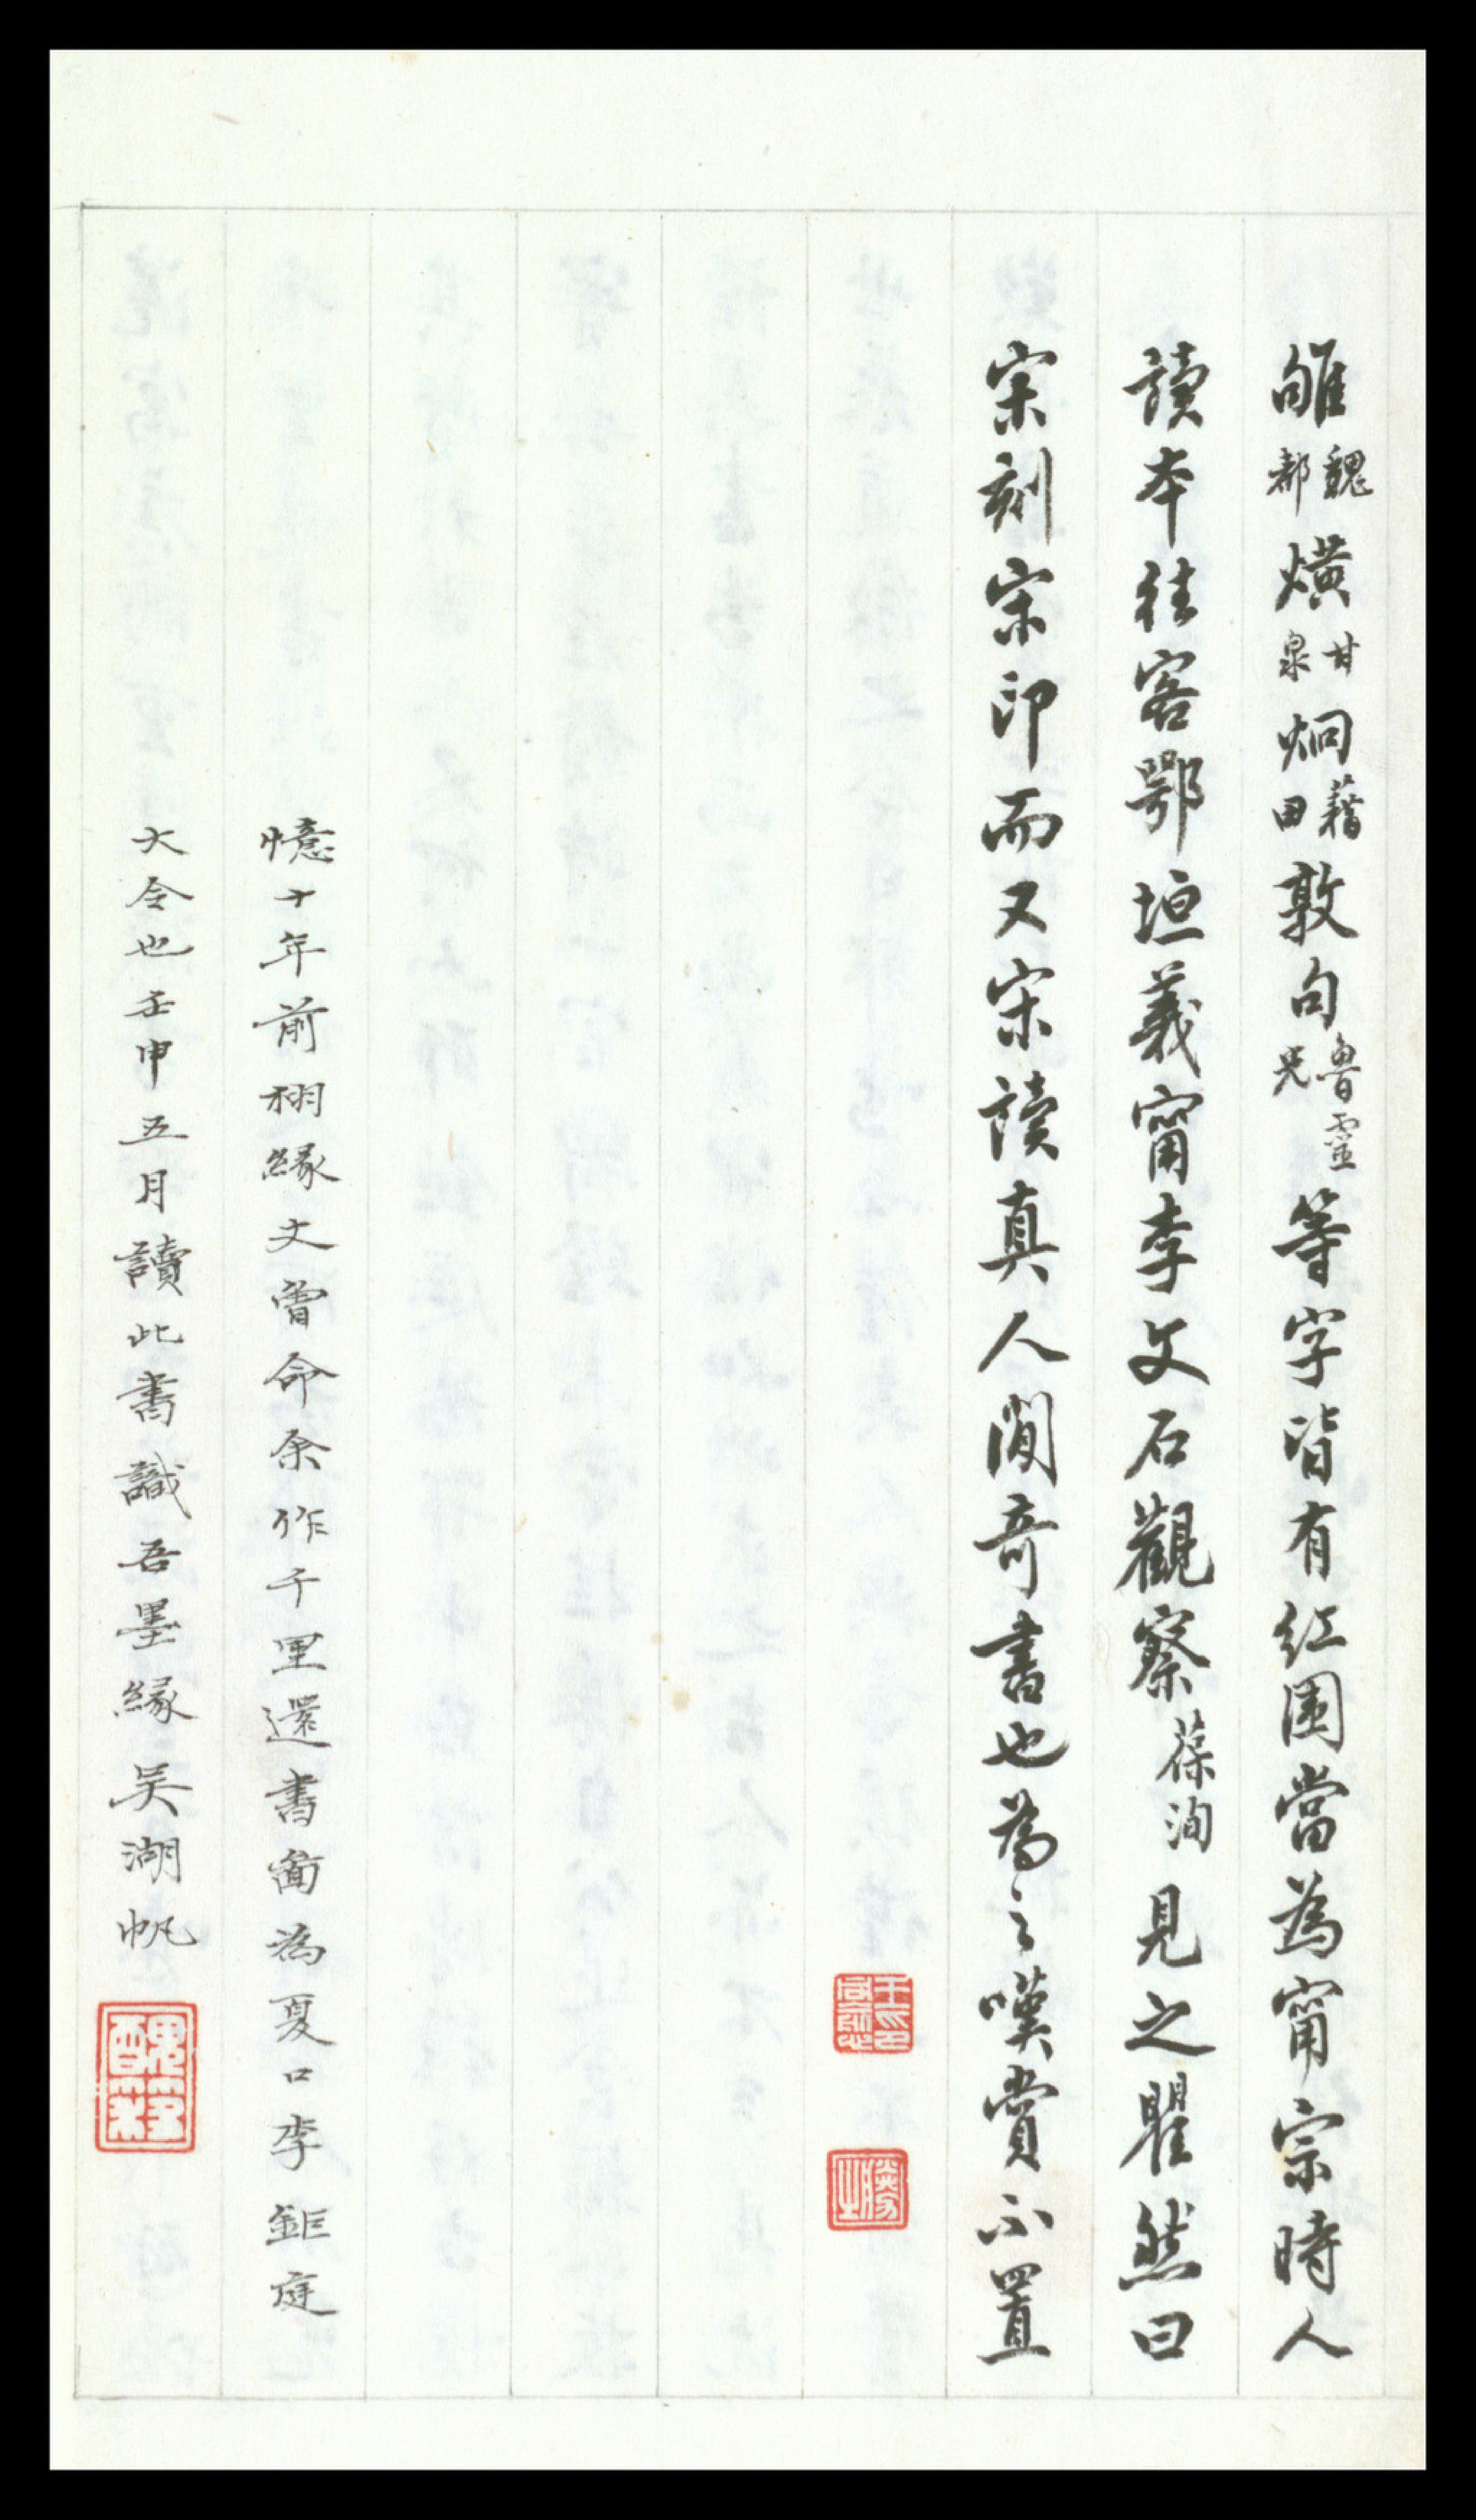 雊魏都熿甘泉烱藉田敦句魯靈光等字皆有紅圍當為甯宗時人
讀本往客鄂垣義甯李文石觀察葆洵見之瞿然曰
宋刻宋印而又宋讀真人間奇書也為之嘆賞不置
憶十年前栩緣丈曾命余作千里還書啚為夏口李鉅庭
大令也壬申五月讀此書識吾墨緣吳湖帆
醜簃